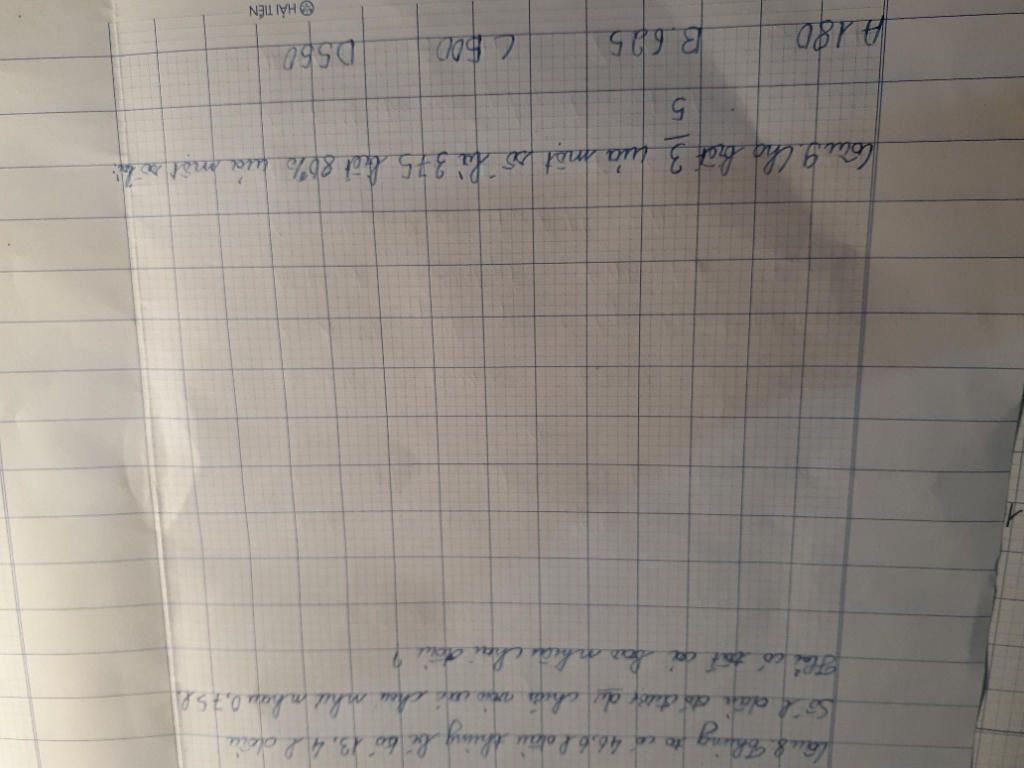 Câu 8 Thùng to có 46.6 l dầu thùng bé có 13.4 l dầu
Số l dầu đó được chứa vào các chai như nhau 0.75 l
Hỏi có tất cả bao nhiêu chai dầu ?
Câu 9 Cho biết 3/5 của một số là 375 hỏi 80% của một số là:
A 180 B. 625 C. 500 D 560
HẢI TIẾN